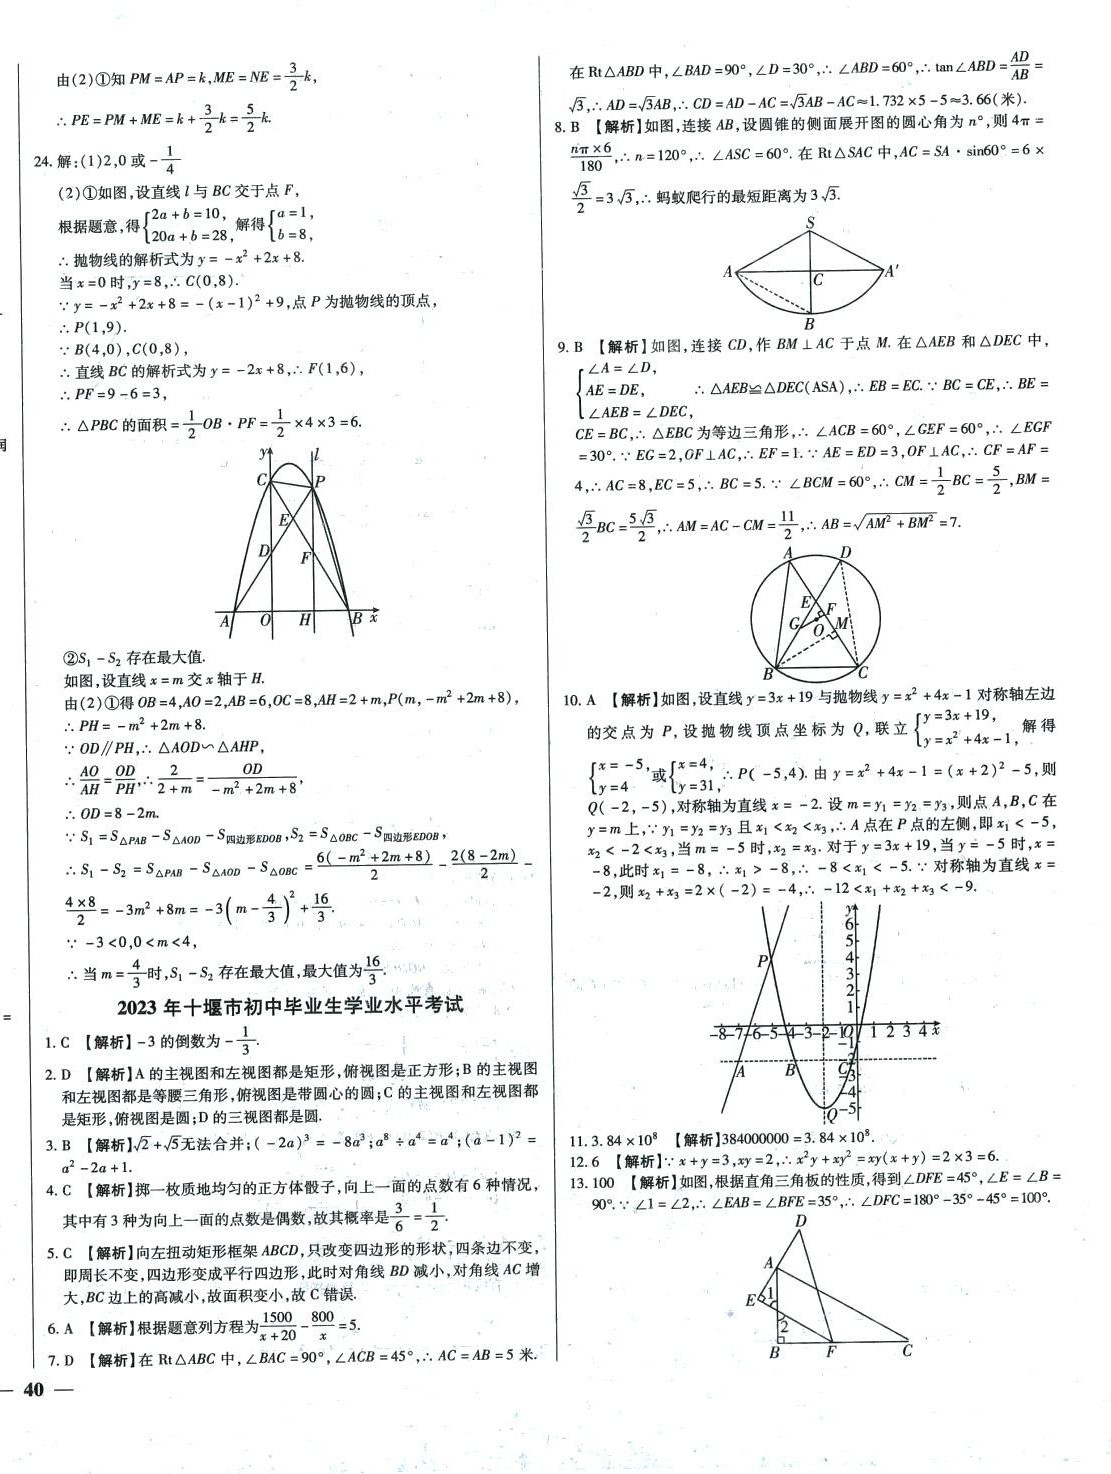 由(2)①知 PM = AP = k, ME = NE = 3/2 k,
∴ PE = PM + ME = k + 3/2 k = 5/2 k.
24. 解:(1)2,0 或 - 1/4
(2)①如图,设直线 l 与 BC 交于点 F,
根据题意,得{2a + b = 10, 20a + b = 28, 解得{a = 1, b = 8,
∴ 抛物线的解析式为 y = - x² + 2x + 8.
当 x = 0 时, y = 8, ∴ C(0,8).
∵ y = - x² + 2x + 8 = - (x - 1)² + 9, 点 P 为抛物线的顶点,
∴ P(1,9).
∵ B(4,0), C(0,8),
∴ 直线 BC 的解析式为 y = - 2x + 8, ∴ F(1,6),
∴ PF = 9 - 6 = 3,
∴ △PBC 的面积 = 1/2 OB · PF = 1/2 × 4 × 3 = 6.
y l
C P
E
D F
A O H B x
②S₁ - S₂ 存在最大值.
如图,设直线 x = m 交 x 轴于 H.
由(2)①得 OB = 4, AO = 2, AB = 6, OC = 8, AH = 2 + m, P(m, - m² + 2m + 8),
∴ PH = - m² + 2m + 8.
∵ OD // PH, ∴ △AOD∽△AHP,
∴ AO/AH = OD/PH, ∴ 2/(2 + m) = OD/(- m² + 2m + 8),
∴ OD = 8 - 2m.
∵ S₁ = S△PAB - S△AOD - S四边形EDOB, S₂ = S△OBC - S四边形EDOB,
∴ S₁ - S₂ = S△PAB - S△AOD - S△OBC = 6(- m² + 2m + 8)/2 - 2(8 - 2m)/2 -
4 × 8/2 = - 3m² + 8m = - 3(m - 4/3)² + 16/3.
∵ - 3 < 0, 0 < m < 4,
∴ 当 m = 4/3 时, S₁ - S₂ 存在最大值,最大值为 16/3.
2023 年十堰市初中毕业生学业水平考试
1. C 【解析】- 3 的倒数为 - 1/3.
2. D 【解析】A 的主视图和左视图都是矩形,俯视图是正方形;B 的主视图
和左视图都是等腰三角形,俯视图是带圆心的圆;C 的主视图和左视图都
是矩形,俯视图是圆;D 的三视图都是圆.
3. B 【解析】√2 + √5无法合并;( - 2a)³ = - 8a³; a⁸ ÷ a⁴ = a⁴; (a - 1)² =
a² - 2a + 1.
4. C 【解析】掷一枚质地均匀的正方体骰子,向上一面的点数有 6 种情况,
其中有 3 种为向上一面的点数是偶数,故其概率是 3/6 = 1/2.
5. C 【解析】向左扭动矩形框架 ABCD,只改变四边形的形状,四条边不变,
即周长不变,四边形变成平行四边形,此时对角线 BD 减小,对角线 AC 增
大,BC 边上的高减小,故面积变小,故 C 错误.
6. A 【解析】根据题意列方程为 1500/(x + 20) - 800/x = 5.
7. D 【解析】在 Rt△ABC 中,∠BAC = 90°,∠ACB = 45°,∴ AC = AB = 5 米.
— 40 —
在 Rt△ABD 中,∠BAD = 90°,∠D = 30°,∴ ∠ABD = 60°,∴ tan∠ABD = AD/AB =
√3,∴ AD = √3AB,∴ CD = AD - AC = √3AB - AC ≈ 1.732 × 5 - 5 ≈ 3.66(米).
8. B 【解析】如图,连接 AB,设圆锥的侧面展开图的圆心角为 n°,则 4π =
nπ × 6/180,∴ n = 120°,∴ ∠ASC = 60°. 在 Rt△SAC 中, AC = SA · sin60° = 6 ×
√3/2 = 3√3,∴ 蚂蚁爬行的最短距离为 3√3.
S
A C A′
B
9. B 【解析】如图,连接 CD,作 BM ⊥ AC 于点 M. 在 △AEB 和 △DEC 中,
{∠A = ∠D,
AE = DE, ∴ △AEB≌△DEC(ASA),∴ EB = EC. ∵ BC = CE,∴ BE =
∠AEB = ∠DEC,
CE = BC,∴ △EBC 为等边三角形,∴ ∠ACB = 60°,∠GEF = 60°,∴ ∠EGF
= 30°. ∵ EG = 2, OF ⊥ AC,∴ EF = 1. ∵ AE = ED = 3, OF ⊥ AC,∴ CF = AF =
4,∴ AC = 8, EC = 5,∴ BC = 5. ∵ ∠BCM = 60°,∴ CM = 1/2 BC = 5/2, BM =
√3/2 BC = 5√3/2,∴ AM = AC - CM = 11/2,∴ AB = √(AM² + BM²) = 7.
A D
E F
G O M
B C
10. A 【解析】如图,设直线 y = 3x + 19 与抛物线 y = x² + 4x - 1 对称轴左边
的交点为 P,设抛物线顶点坐标为 Q,联立{y = 3x + 19, y = x² + 4x - 1, 解得
{x = - 5, y = 4 或{x = 4, y = 31, ∴ P( - 5,4). 由 y = x² + 4x - 1 = (x + 2)² - 5,则
Q( - 2, - 5),对称轴为直线 x = - 2. 设 m = y₁ = y₂ = y₃,则点 A,B,C 在
y = m 上,∵ y₁ = y₂ = y₃ 且 x₁ < x₂ < x₃,∴ A 点在 P 点的左侧,即 x₁ < - 5,
x₂ < - 2 < x₃,当 m = - 5 时, x₂ = x₃. 对于 y = 3x + 19,当 y = - 5 时, x =
- 8,此时 x₁ = - 8, ∴ x₁ > - 8,∴ - 8 < x₁ < - 5. ∵ 对称轴为直线 x =
- 2,则 x₂ + x₃ = 2 × ( - 2) = - 4,∴ - 12 < x₁ + x₂ + x₃ < - 9.
y
6
5
P 4
3
2
1
-8-7-6-5-4-3-2-1O 1 2 3 4 x
-1
A B C -2
-3
-4
Q -5
11. 3.84 × 10⁸ 【解析】384000000 = 3.84 × 10⁸.
12. 6 【解析】∵ x + y = 3, xy = 2,∴ x²y + xy² = xy(x + y) = 2 × 3 = 6.
13. 100 【解析】如图,根据直角三角板的性质,得到∠DFE = 45°,∠E = ∠B =
90°. ∵ ∠1 = ∠2,∴ ∠EAB = ∠BFE = 35°,∴ ∠DFC = 180° - 35° - 45° = 100°.
D
A
E 1
2
B F C